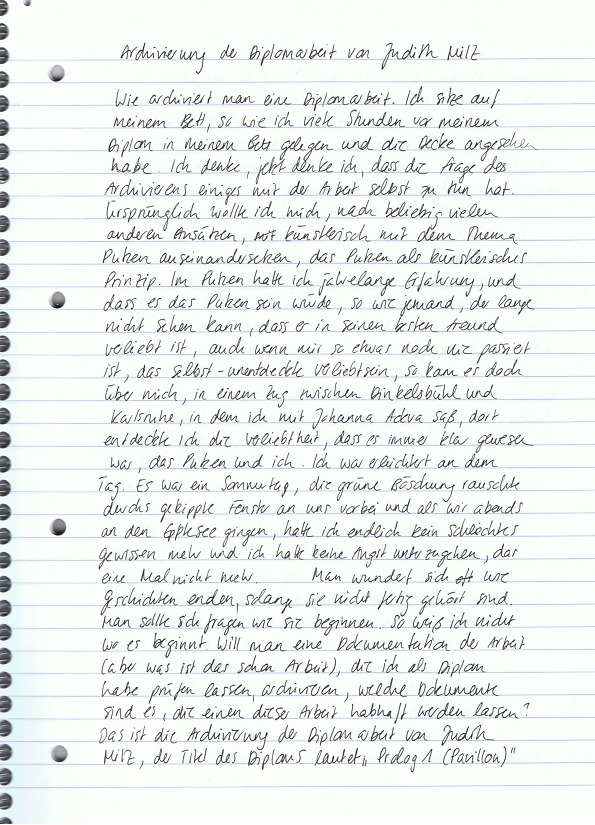 Archivierung der Diplomarbeit von Judith Milz
Wie archiviert man eine Diplomarbeit. Ich sitze auf
meinem Bett, so wie ich viele Stunden vor meinem
Diplom in meinem Bett gelegen und die Decke angesehen
habe. Ich denke, jetzt denke ich, dass die Frage des
Archivierens einiges mit der Arbeit selbst zu tun hat.
Ursprünglich wollte ich mich, nach beliebig vielen
anderen Ansätzen, künstlerisch mit dem Thema
Putzen auseinandersetzen, das Putzen als künstlerisches
Prinzip. Im Putzen hatte ich jahrelange Erfahrung, und
dass es das Putzen sein würde, so wie jemand, der lange
nicht sehen kann, dass er in seinen besten Freund
verliebt ist, auch wenn mir so etwas noch nie passiert
ist, das selbst-unentdeckte Verliebtsein, so kam es doch
über mich, in einem Zug zwischen Dinkelsbühl und
Karlsruhe, in dem ich mit Johanna Adeva saß, dort
entdeckte ich die Verliebtheit, dass es immer klar gewesen
war, das Putzen und ich. Ich war erleichtert an dem
Tag. Es war ein Sonnentag, die grüne Böschung rauschte
durchs gekippte Fenster an uns vorbei und als wir abends
an den Epplesee gingen, hatte ich endlich kein schlechtes
Gewissen mehr und ich hatte keine Angst unterzugehen, das
eine Mal nicht mehr. Man wundert sich oft wie
Geschichten enden, solange sie nicht fertig gehört sind.
Man sollte sich fragen wie sie beginnen. So weiß ich nicht
wo es beginnt. Will man eine Dokumentation der Arbeit
(aber was ist das schon Arbeit), die ich als Diplom
habe prüfen lassen, archivieren, welche Dokumente
sind es, die einen dieser Arbeit habhaft werden lassen?
Das ist die Archivierung der Diplomarbeit von Judith
Milz, der Titel des Diploms lautet „Prolog 1 (Pavillon)"